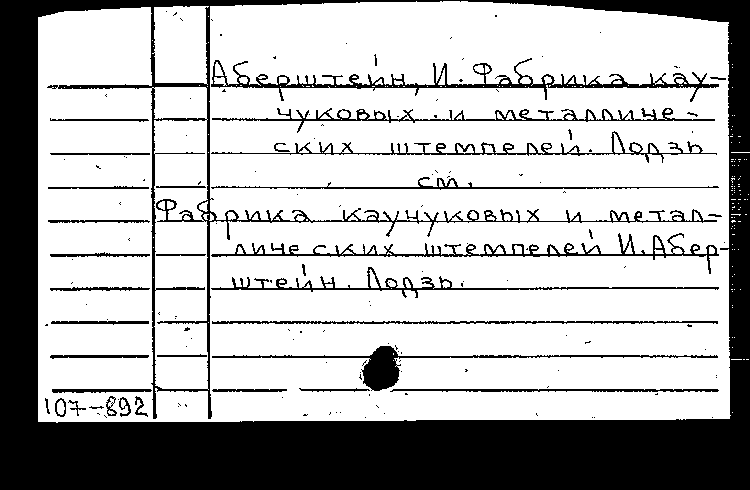 Аберштейн, И. Фабрика кау-
чуковых и металличе-
ских штемпелей. Лодзь
см.
Фабрика каучуковых и метал-
лических штемпелей И. Абер-
штейн. Лодзь.
107-892